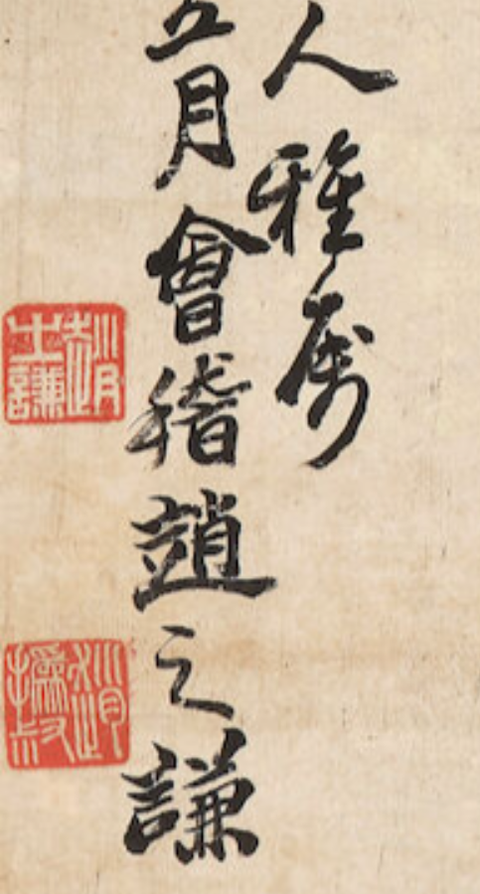 人雅屬
五月會稽趙之謙
趙之謙
趙撝叔